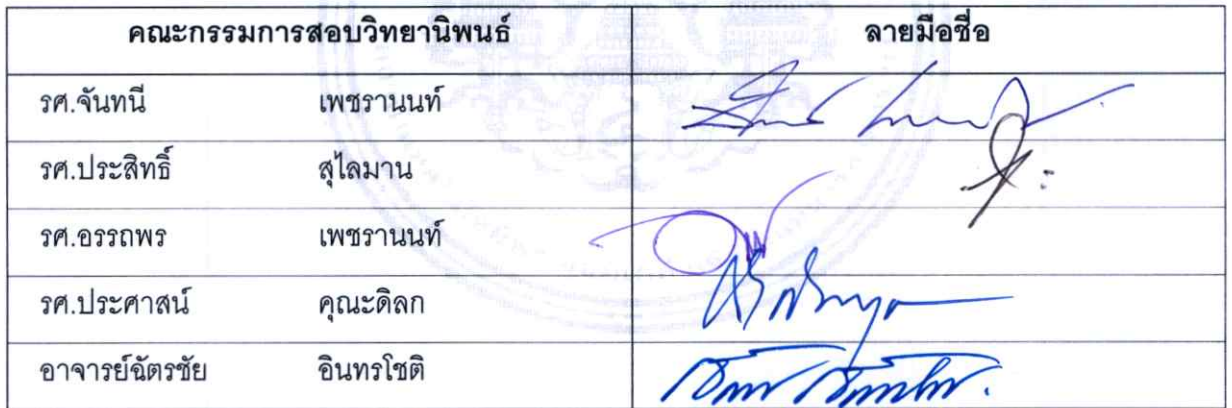 คณะกรรมการสอบวิทยานิพนธ์ ลายมือชื่อ
รศ.จันทนี เพชรานนท์
รศ.ประสิทธิ์ สุไลมาน
รศ.อรรถพร เพชรานนท์
รศ.ประศาสน์ คุณะดิลก
อาจารย์ฉัตรชัย อินทรโชติ